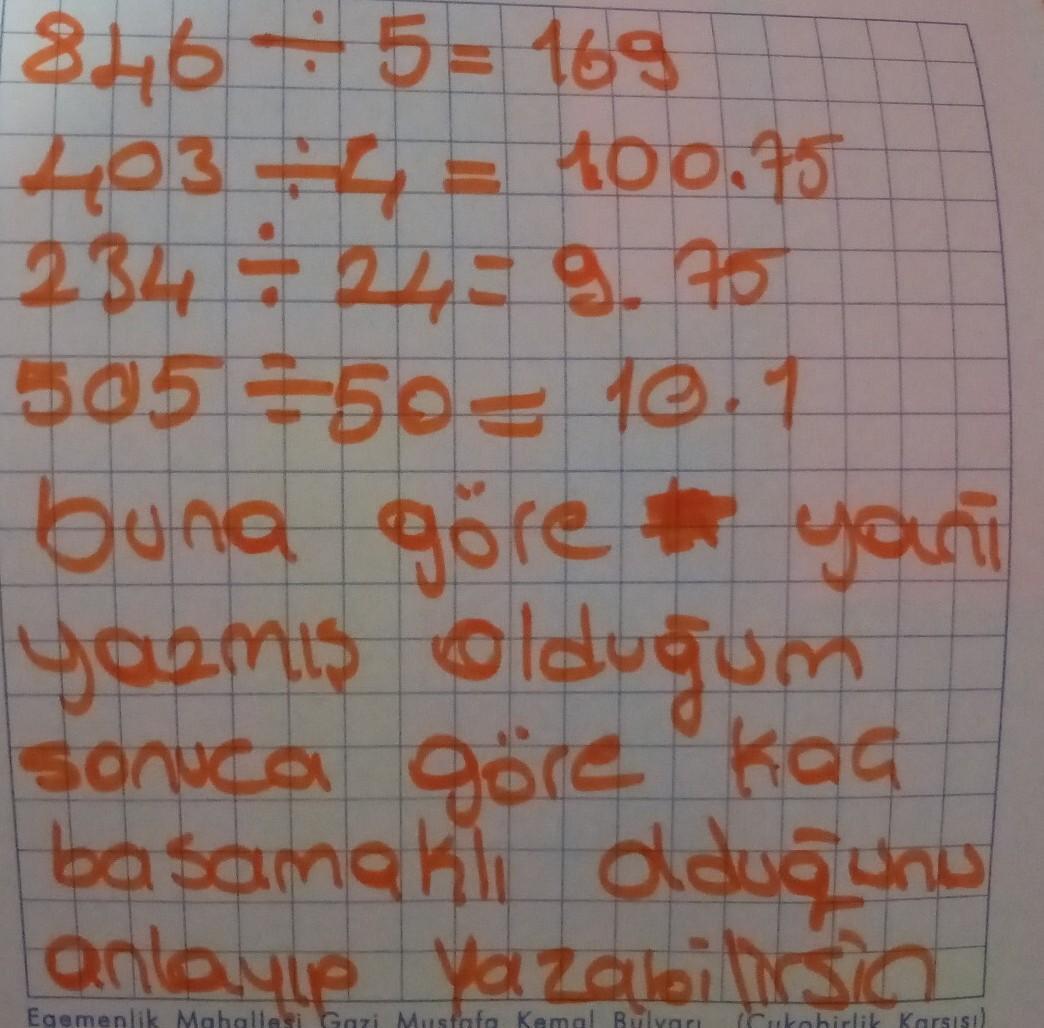 846 ÷ 5 = 169
403 ÷ 4 = 100.75
234 ÷ 24 = 9.75
505 ÷ 50 = 10.1
buna göre yani
yazmış olduğum
sonuca göre kaç
basamaklı olduğunu
anlayıp yazabilirsin
Egemenlik Mahallesi Gazi Mustafa Kemal Bulvarı (Çukobirlik Karşısı)